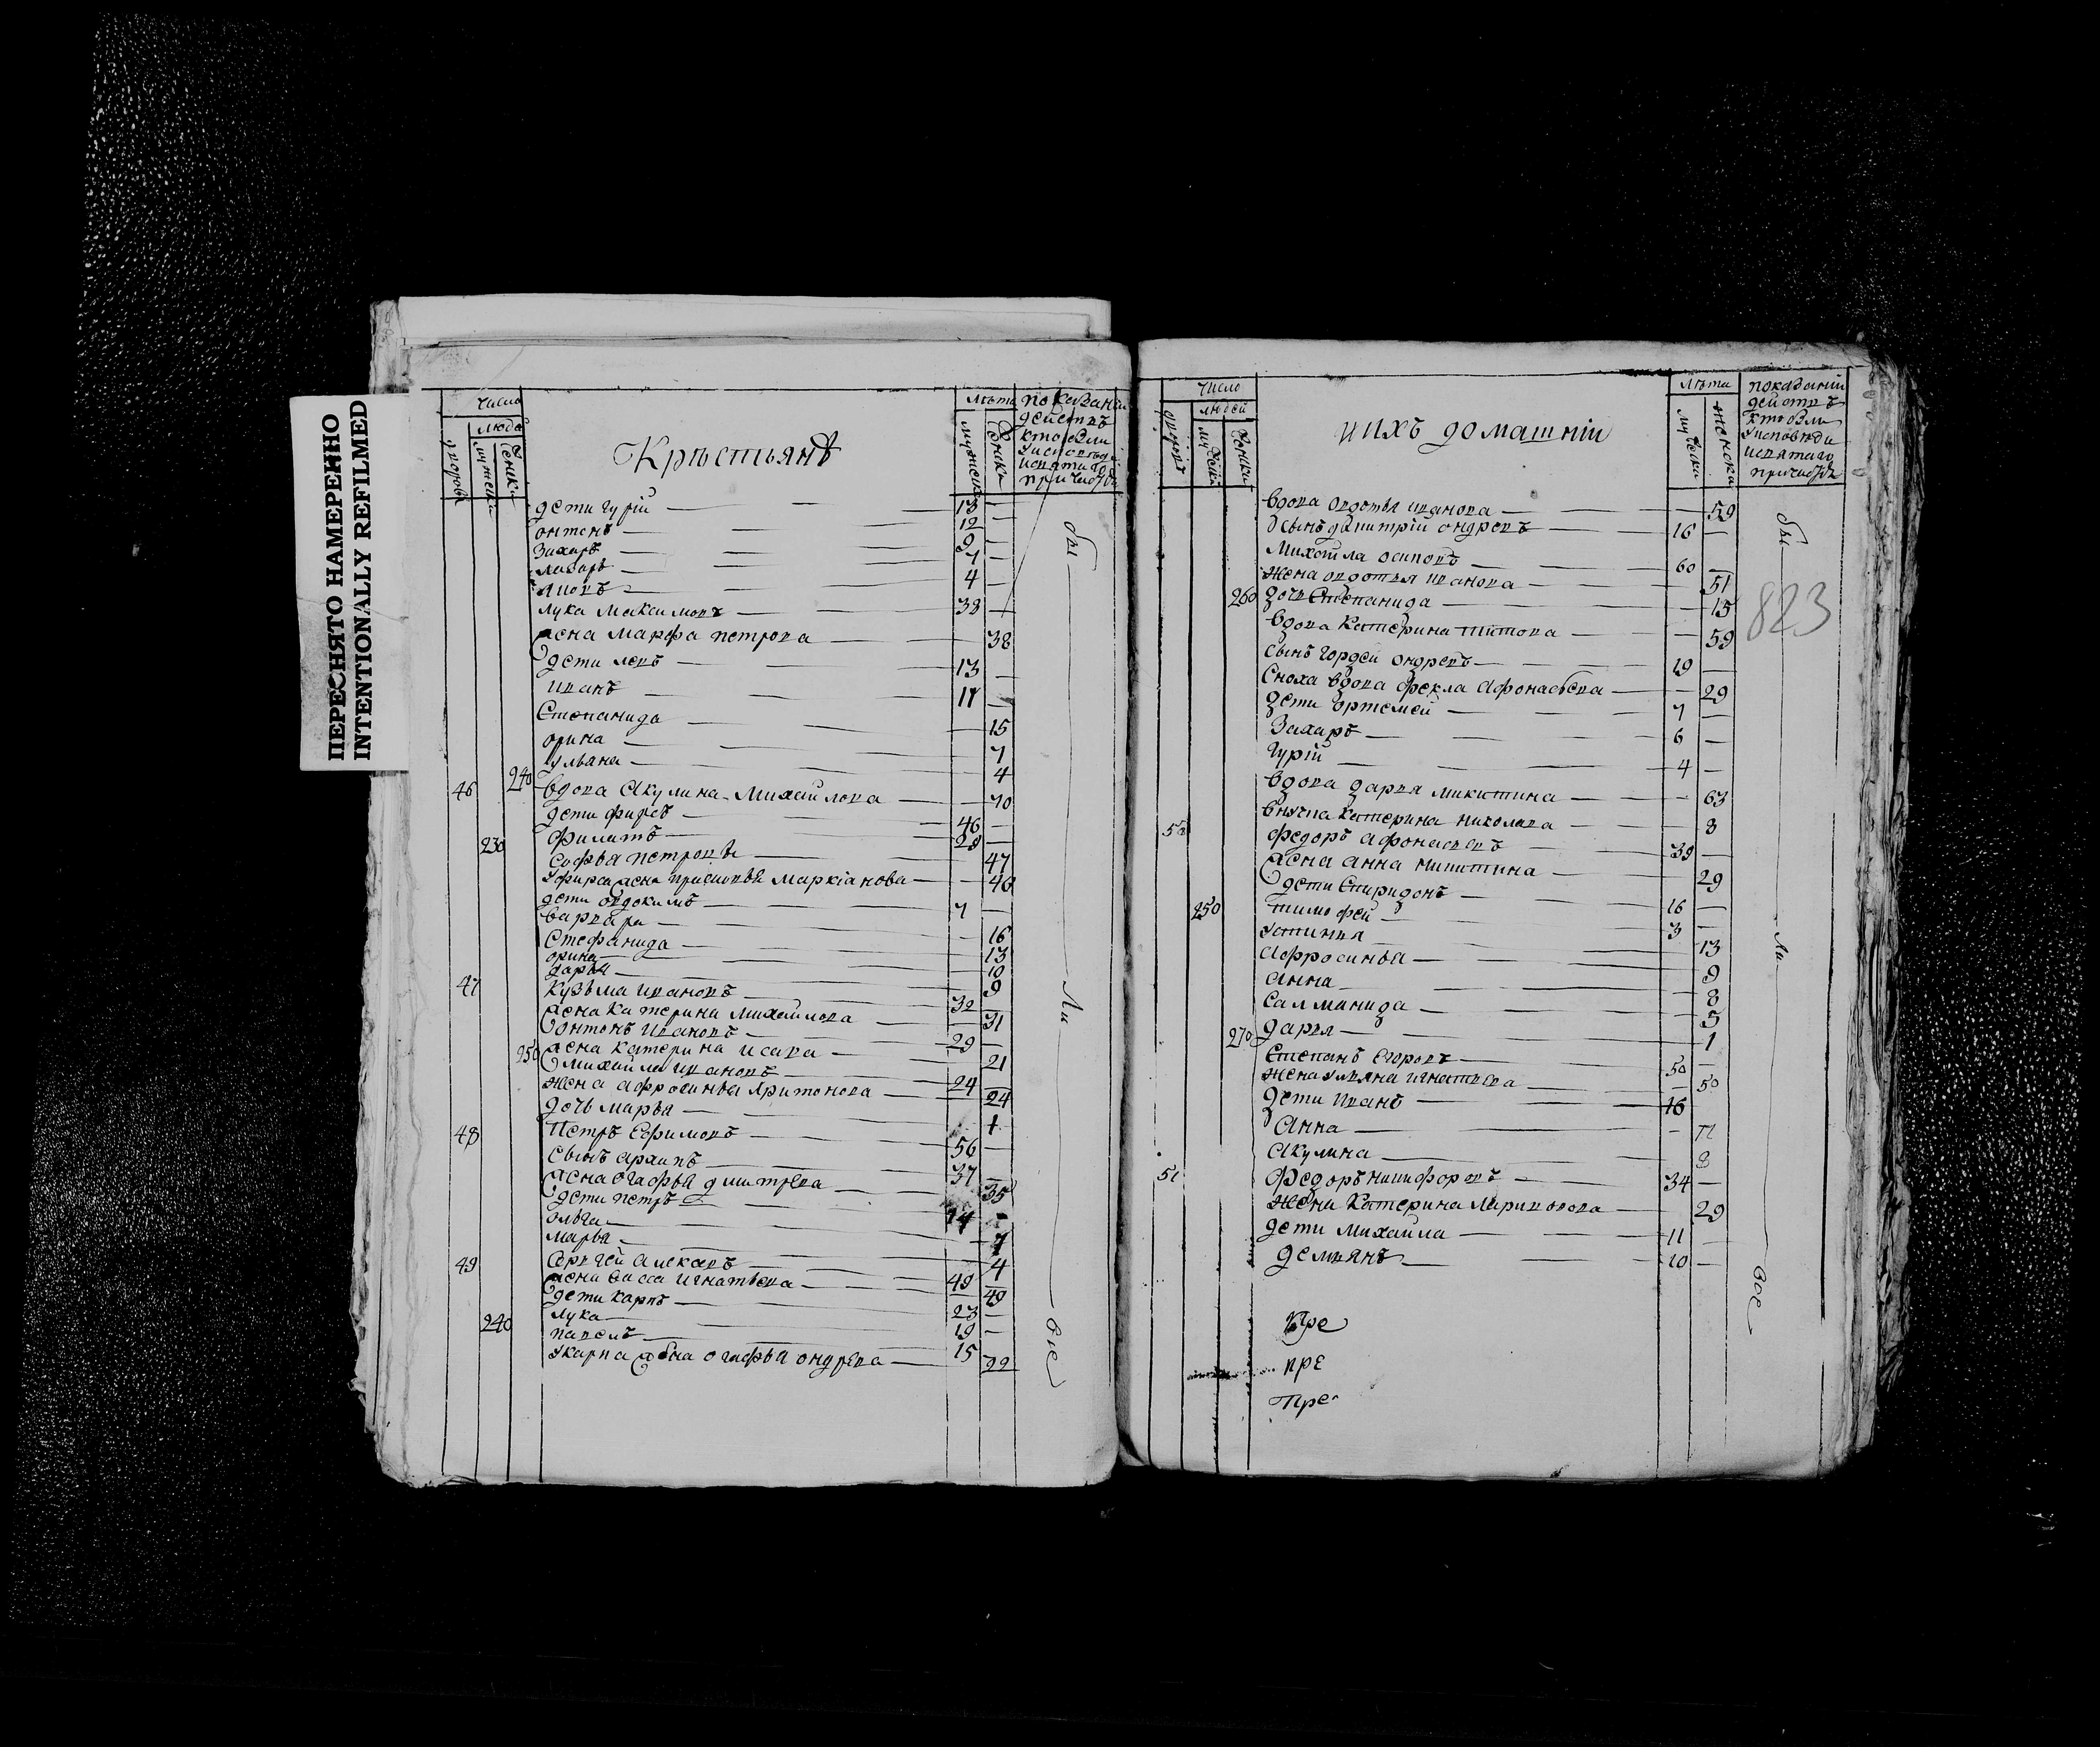 ПЕРЕСНЯТО НАМЕРЕННО
INTENTIONALLY REFILMED
Число
люде
дворовъ
мужеск
женки
Крѣстьянѣ
лѣта
мужеск
женски
показании
действъ
кто были
у исповѣди
и святаго
причастия
дети гурій — 13
онтонъ — 12
Захаръ — 9
лазарь — 7
яковъ — 4
лука Максимовъ — 38
жена марфа петрова — 38
дети левъ — 13
иванъ — 11
Степанида — 15
орина — 7
ульяна — 4
46 240 вдова Акулина Михайлова — 70
дети фирсъ — 46
230 филатъ — 28
софья петровы — 47
У фирса жена прасковья маркіанова — 46
дети овдокимъ — 7
варвара — 16
Стефанида — 13
орина — 10
дарья — 9
47 Кузьма ивановъ — 32
жена катерина михайлова — 31
онтонъ ивановъ — 29
250 жена катерина исаева — 21
михайла ивановъ — 24
жена афросинья харитонова — 24
дочь марья — 1
48 Петръ Ефимовъ — 56
сынъ архипъ — 37
жена огафья дмитрева — 35
дети петръ — 14
ольга — 7
марья — 4
49 Сергей алексевъ — 49
жена васса игнатьева — 49
дети карпъ — 23
лука — 19
240 павелъ — 15
У карпа жена огафья ондрева — 22
бы ли все
Число
людей
дворовъ
мужески
женски
и ихъ домашніи
Лѣта
мужески
женски
показаній
действъ
кто были
у исповѣди
и святаго
причастія
823
вдова овдотья иванова — 59
сынъ дмитрій ондревъ — 16
Михайла осиповъ — 60
жена овдотья иванова — 51
260 дочь Степанида — 15
вдова катерина титова — 59
сынъ гордей ондревъ — 19
сноха вдова фекла афонасьева — 29
дети ортемей — 7
Захаръ — 6
гурій — 4
вдова дарья микитина — 63
внучка катерина николаева — 8
50 федоръ афонасевъ — 39
жена анна никитина — 29
дети Спиридонъ — 16
250 тимофей — 3
устинья — 13
афросинья — 9
анна — 8
салманида — 5
270 дарья — 1
Степанъ Егоровъ — 50
жена ульяна игнатьева — 50
дети иванъ — 16
Анна — 11
Акулина — 8
51 Федоръ никифоровъ — 34
жена Катерина Ларионова — 29
дети михайла — 11
демьянъ — 10
бы ли все
Пре
пре
Пре